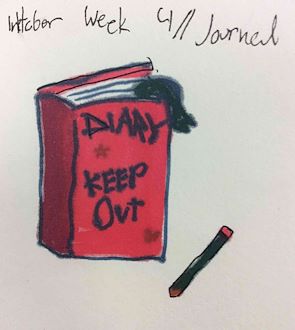 Inktober Week 4// Journal
DIARY
KEEP
OUt